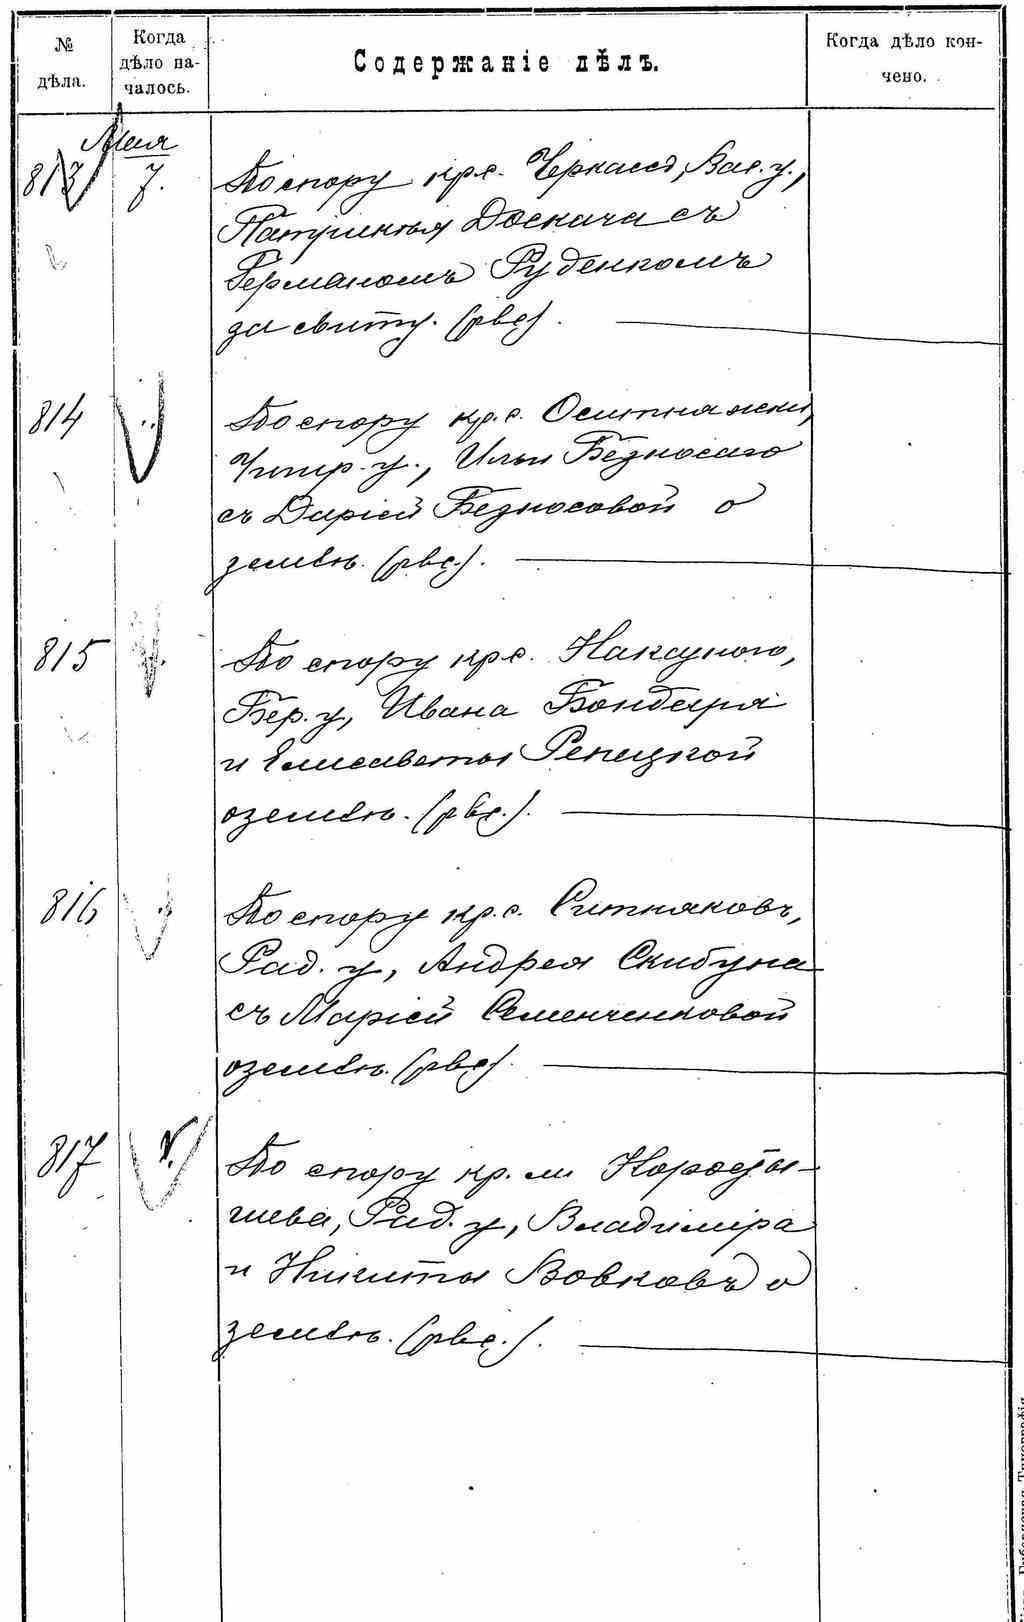 № дѣла.
Когда дѣло началось.
Содержаніе дѣлъ.
Когда дѣло кончено.
Мая
813 7. По спору кр. с. Черкасс, Вас. у.,
Доскача съ
Германомъ Руденкомъ
за свиту. (рвс).
814 По спору кр. с. Оситняжки,
Чигир. у., Ильи Безносаго
съ Дарiей Безносовой о
землѣ. (рвс.).
815 По спору кр. с. Накауного,
Бер. у, Ивана Бондаря
и Елисаветы Репецкой
о землѣ. (рвс.).
816 По спору кр. с. Ситняковъ,
Рад. у, Андрея Скибуна
съ Марiей Семенченковой
о землѣ. (рвс).
817 По спору кр. м. Коросты-
шева, Рад. у, Владимiра
и Никиты Вовковъ о
землѣ. (рвс.).
Губернская Типографія